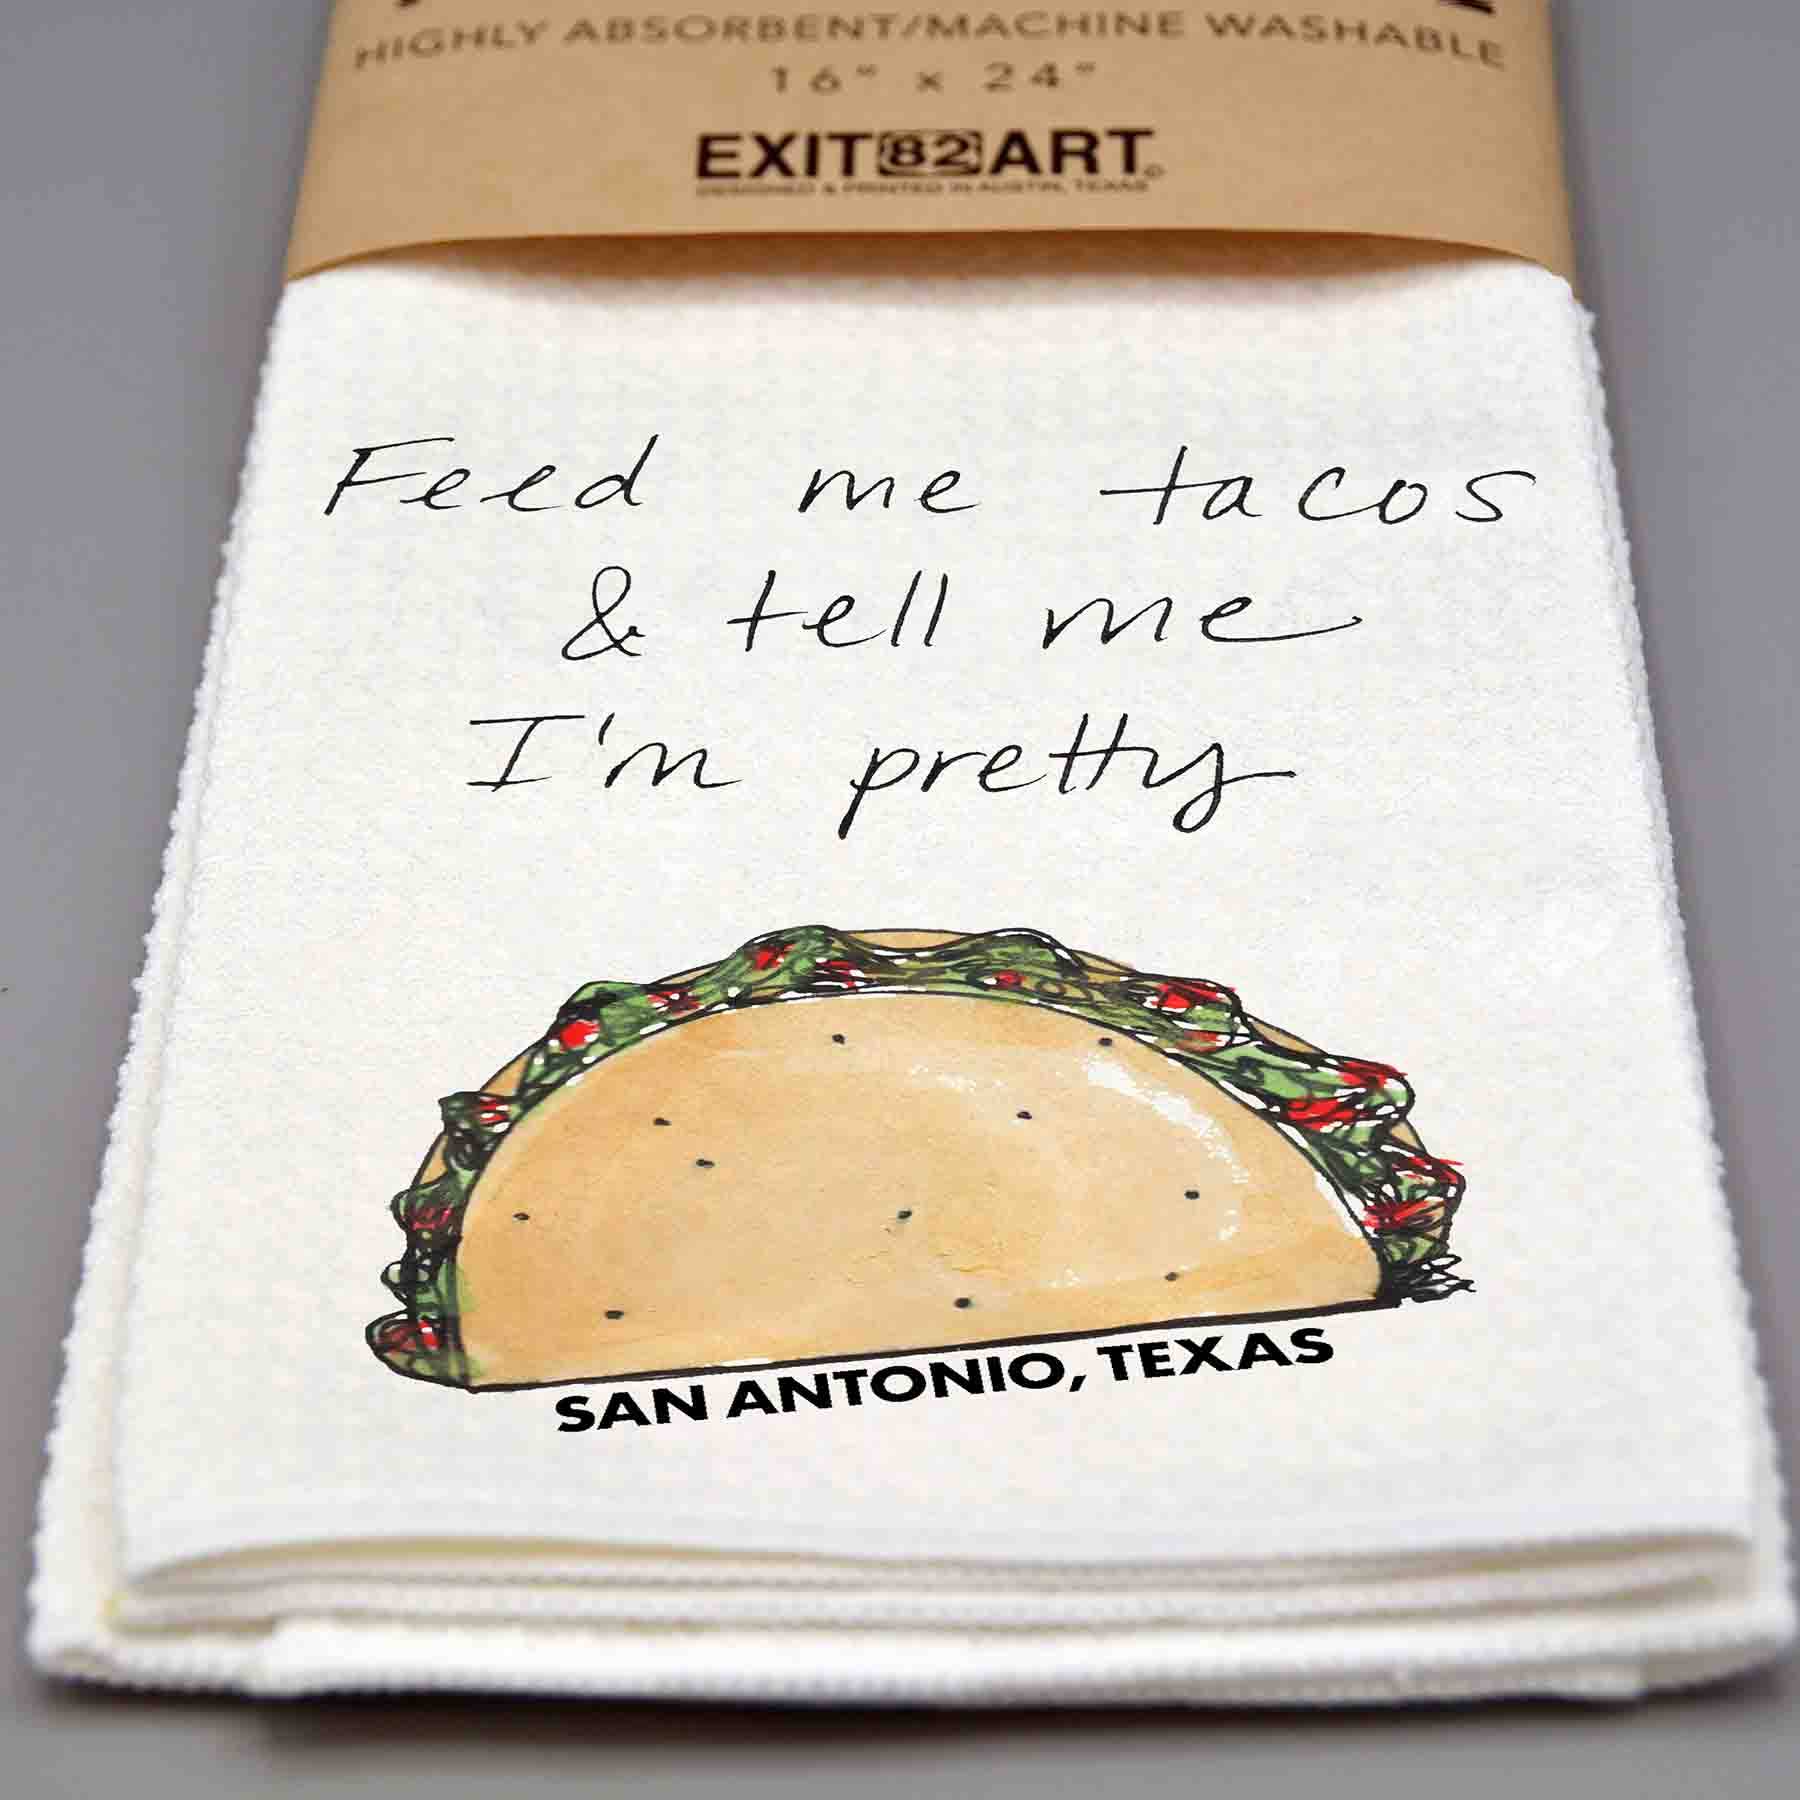 HIGHLY ABSORBENT/MACHINE WASHABLE
16" x 24"
EXIT82ART
DESIGNED & PRINTED IN AUSTIN, TEXAS
Feed me tacos
& tell me
I'm pretty
SAN ANTONIO, TEXAS